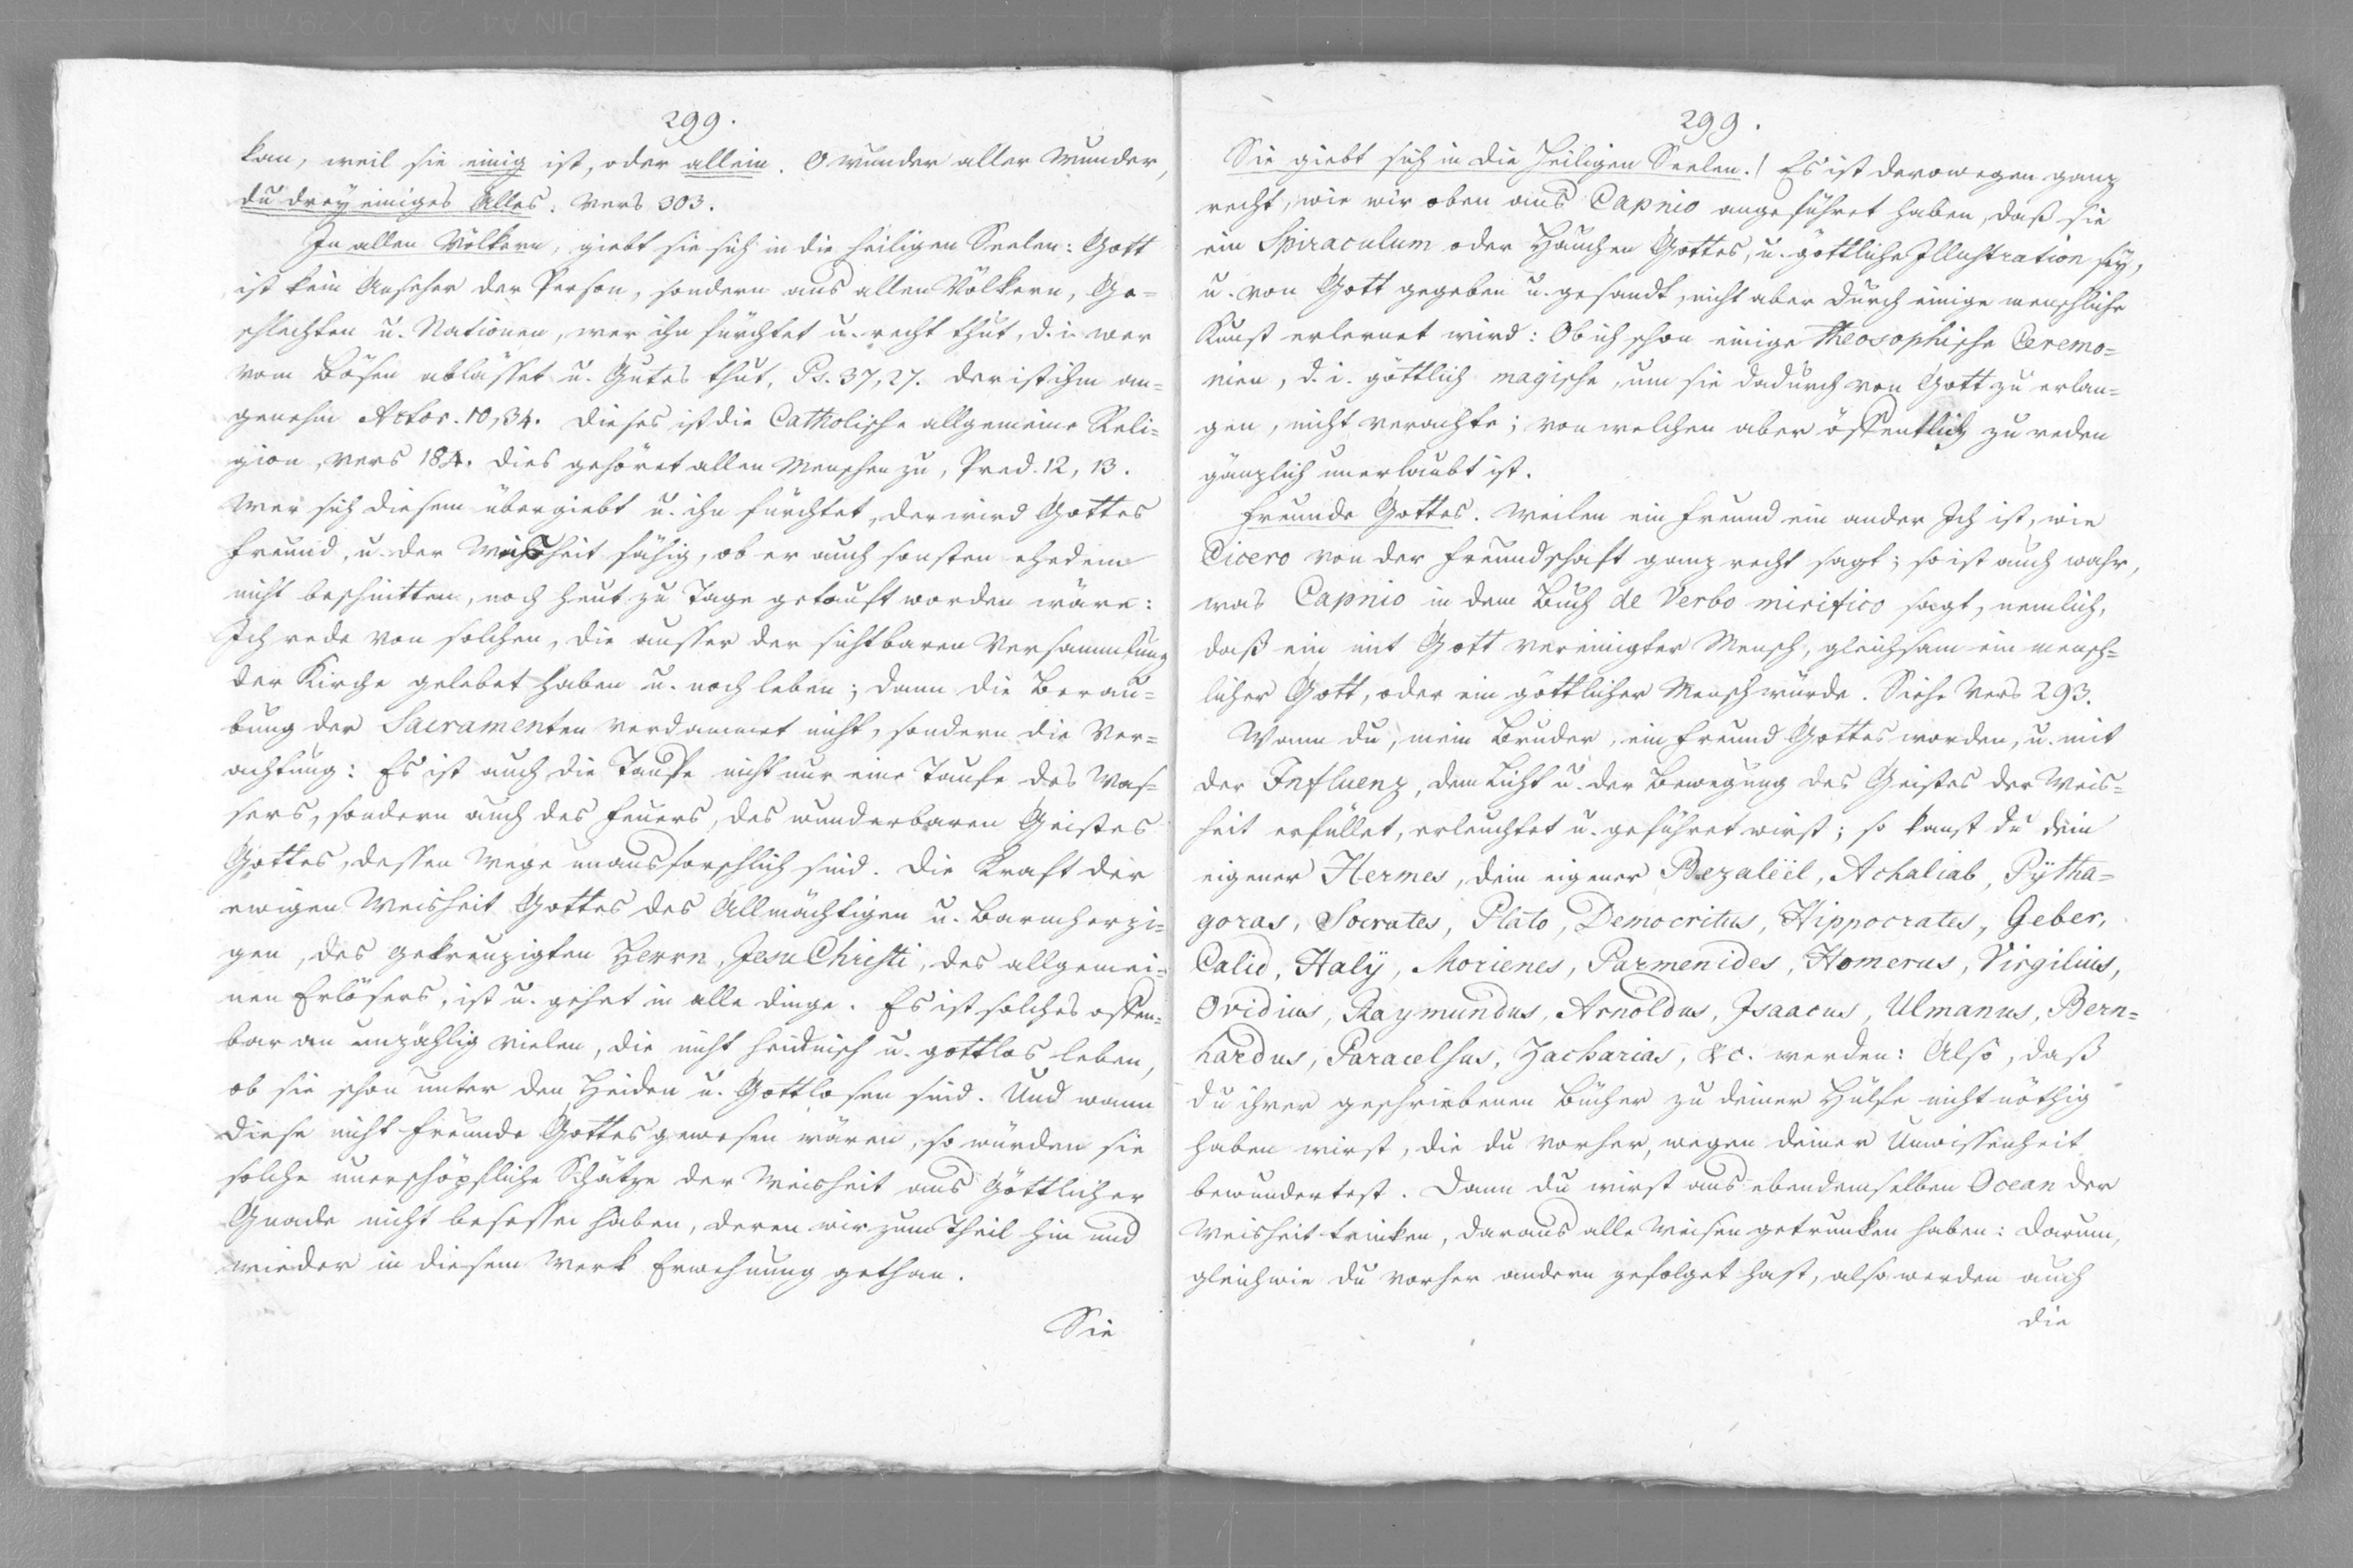 299.
kan, weil sie einig ist, oder allein. O Wunder aller Wunder,
du dreyeiniges Alles. Vers 303.
In allen Völkern, giebt sie sich in die heiligen Seelen: Gott
ist kein Anseher der Person, sondern aus allen Völkern, Ge=
schlechten u. Nationen, wer ihn fürchtet u. recht thut, d. i. wer
vom Bösen ablässet u. Gutes thut, Ps. 37,27. der ist ihm an=
genehm Actor. 10,34. Dieses ist die Catholische allgemeine Reli=
gion, Vers 184. Dies gehöret allen Menschen zu, Pred. 12, 13.
Wer sich diesem übergiebt u. ihn fürchtet, der wird Gottes
Freund, u. der Weisheit fähig, ob er auch sonsten ehedem
nicht beschnitten, noch heut zu Tage getauft worden wäre:
Ich rede von solchen, die ausser der sichtbaren Versammlung
der Kirche gelebet haben u. noch leben; dann die Berau=
bung der Sacramenten verdammet nicht, sondern die Ver=
achtung: Es ist auch die Tauffe nicht nur eine Taufe des Was=
sers, sondern auch des Feuers, des wunderbaren Geistes
Gottes, dessen Wege unausforschlich sind. Die Kraft der
ewigen Weisheit Gottes des Allmächtigen u. Barmherzi=
gen, des gekreuzigten Herrn, Jesu Christi, des allgemei=
nen Erlösers, ist u. gehet in alle Dinge. Es ist solches offen=
bar an unzählig vielen, die nicht heidnisch u. gottlos leben,
ob sie schon unter den Heiden u. Gottlosen sind. Und wann
diese nicht Freunde Gottes gewesen wären, so würden sie
solche unerschöpfliche Schätze der Weisheit aus Göttlicher
Gnade nicht besessen haben, deren wir zum Theil hin und
wieder in diesem Werk Erwehnung gethan.
Sie
299.
Sie giebt sich in die heiligen Seelen.! Es ist derowegen ganz
recht, wie wir oben aus Capnio angeführet haben, daß sie
ein Spiraculum oder Hauchen Gottes, u. göttliche Illustration sey,
u. von Gott gegeben u. gesandt, nicht aber durch einige menschliche
Kunst erlernet wird: Ob ich schon einige Theosophische Ceremo=
nien, d. i. göttlich magische, um sie dadurch von Gott zu erlan=
gen, nicht verachte; von welchen aber öffentlich zu reden
gänzlich unerlaubt ist.
Freunde Gottes. Weilen ein Freund ein ander Ich ist, wie
Cicero von der Freundschaft ganz recht sagt; so ist auch wahr,
was Capnio in dem Buch de Verbo mirifico sagt, nemlich,
daß ein mit Gott vereinigter Mensch, gleichsam ein mensch=
licher Gott, oder ein göttlicher Mensch würde. Siehe Vers 293.
Wann du, mein Bruder, ein Freund Gottes worden, u. mit
der Influenz, dem Licht u. der Bewegung des Geistes der Weis=
heit erfüllet, erleuchtet u. geführet wirst; so kanst du dein
eigener Hermes, dein eigener Bezaleël, Achaliab, Pÿtha=
goras, Socrates, Plato, Democritus, Hippocrates, Geber,
Calid, Halÿ, Morienes, Parmenides, Homerus, Virgilius,
Ovidius, Raymundus, Arnoldus, Isaacus, Ulmanus, Bern=
hardus, Paracelsus, Zacharias, &c. werden: Also, daß
du ihrer geschriebenen Bücher zu deiner Hülfe nicht nöthig
haben wirst, die du vorher, wegen deiner Unwissenheit
bewundertest. Dann du wirst aus ebendemselben Ocean der
Weisheit trinken, daraus alle Weisen getrunken haben: Darum,
gleichwie du vorher andern gefolget hast, also werden auch
die